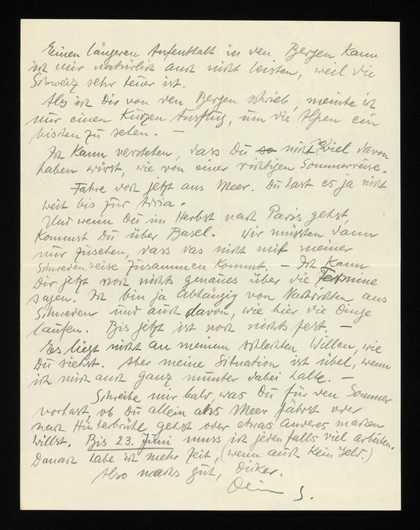 Einen längeren Aufenthalt in den Bergen kann
ich mir natürlich auch nicht leisten, weil die
Schweiz sehr teuer ist.
Als ich Dir von den Bergen schrieb, meinte ich
nur einen kurzen Ausflug, um die Alpen ein
bisschen zu sehen. —
Ich kann verstehen, dass Du nicht viel davon
haben wirst, wie von einer richtigen Sommerreise.
Fahre doch jetzt ans Meer. Du hast es ja nicht
weit bis zur
Und wenn Du im Herbst nach Paris gehst,
kommst Du über Basel. Wir müssten dann
nur zusehen, dass das nicht mit meiner
Schwedenreise zusammen kommt. — Ich kann
Dir jetzt noch nichts genaues über die Termine
sagen. Ich bin ja abhängig von Nachrichten aus
Schweden und auch davon, wie hier die Dinge
laufen. Bis jetzt ist noch nichts fest. —
Es liegt nicht an meinem schlechten Willen, wie
Du siehst. Aber meine Situation ist übel, wenn
ich mich auch ganz munter dabei halte. —
Schreibe nur bald, was Du für den Sommer
vorhast, ob Du allein ans Meer fährst oder
nach Hinterbrühl gehst oder etwas anderes machen
willst. Bis 23. Juni muss ich jedenfalls viel arbeiten.
Danach habe ich mehr Zeit, (wenn auch kein Geld.)
Also machs gut,
Dein S.